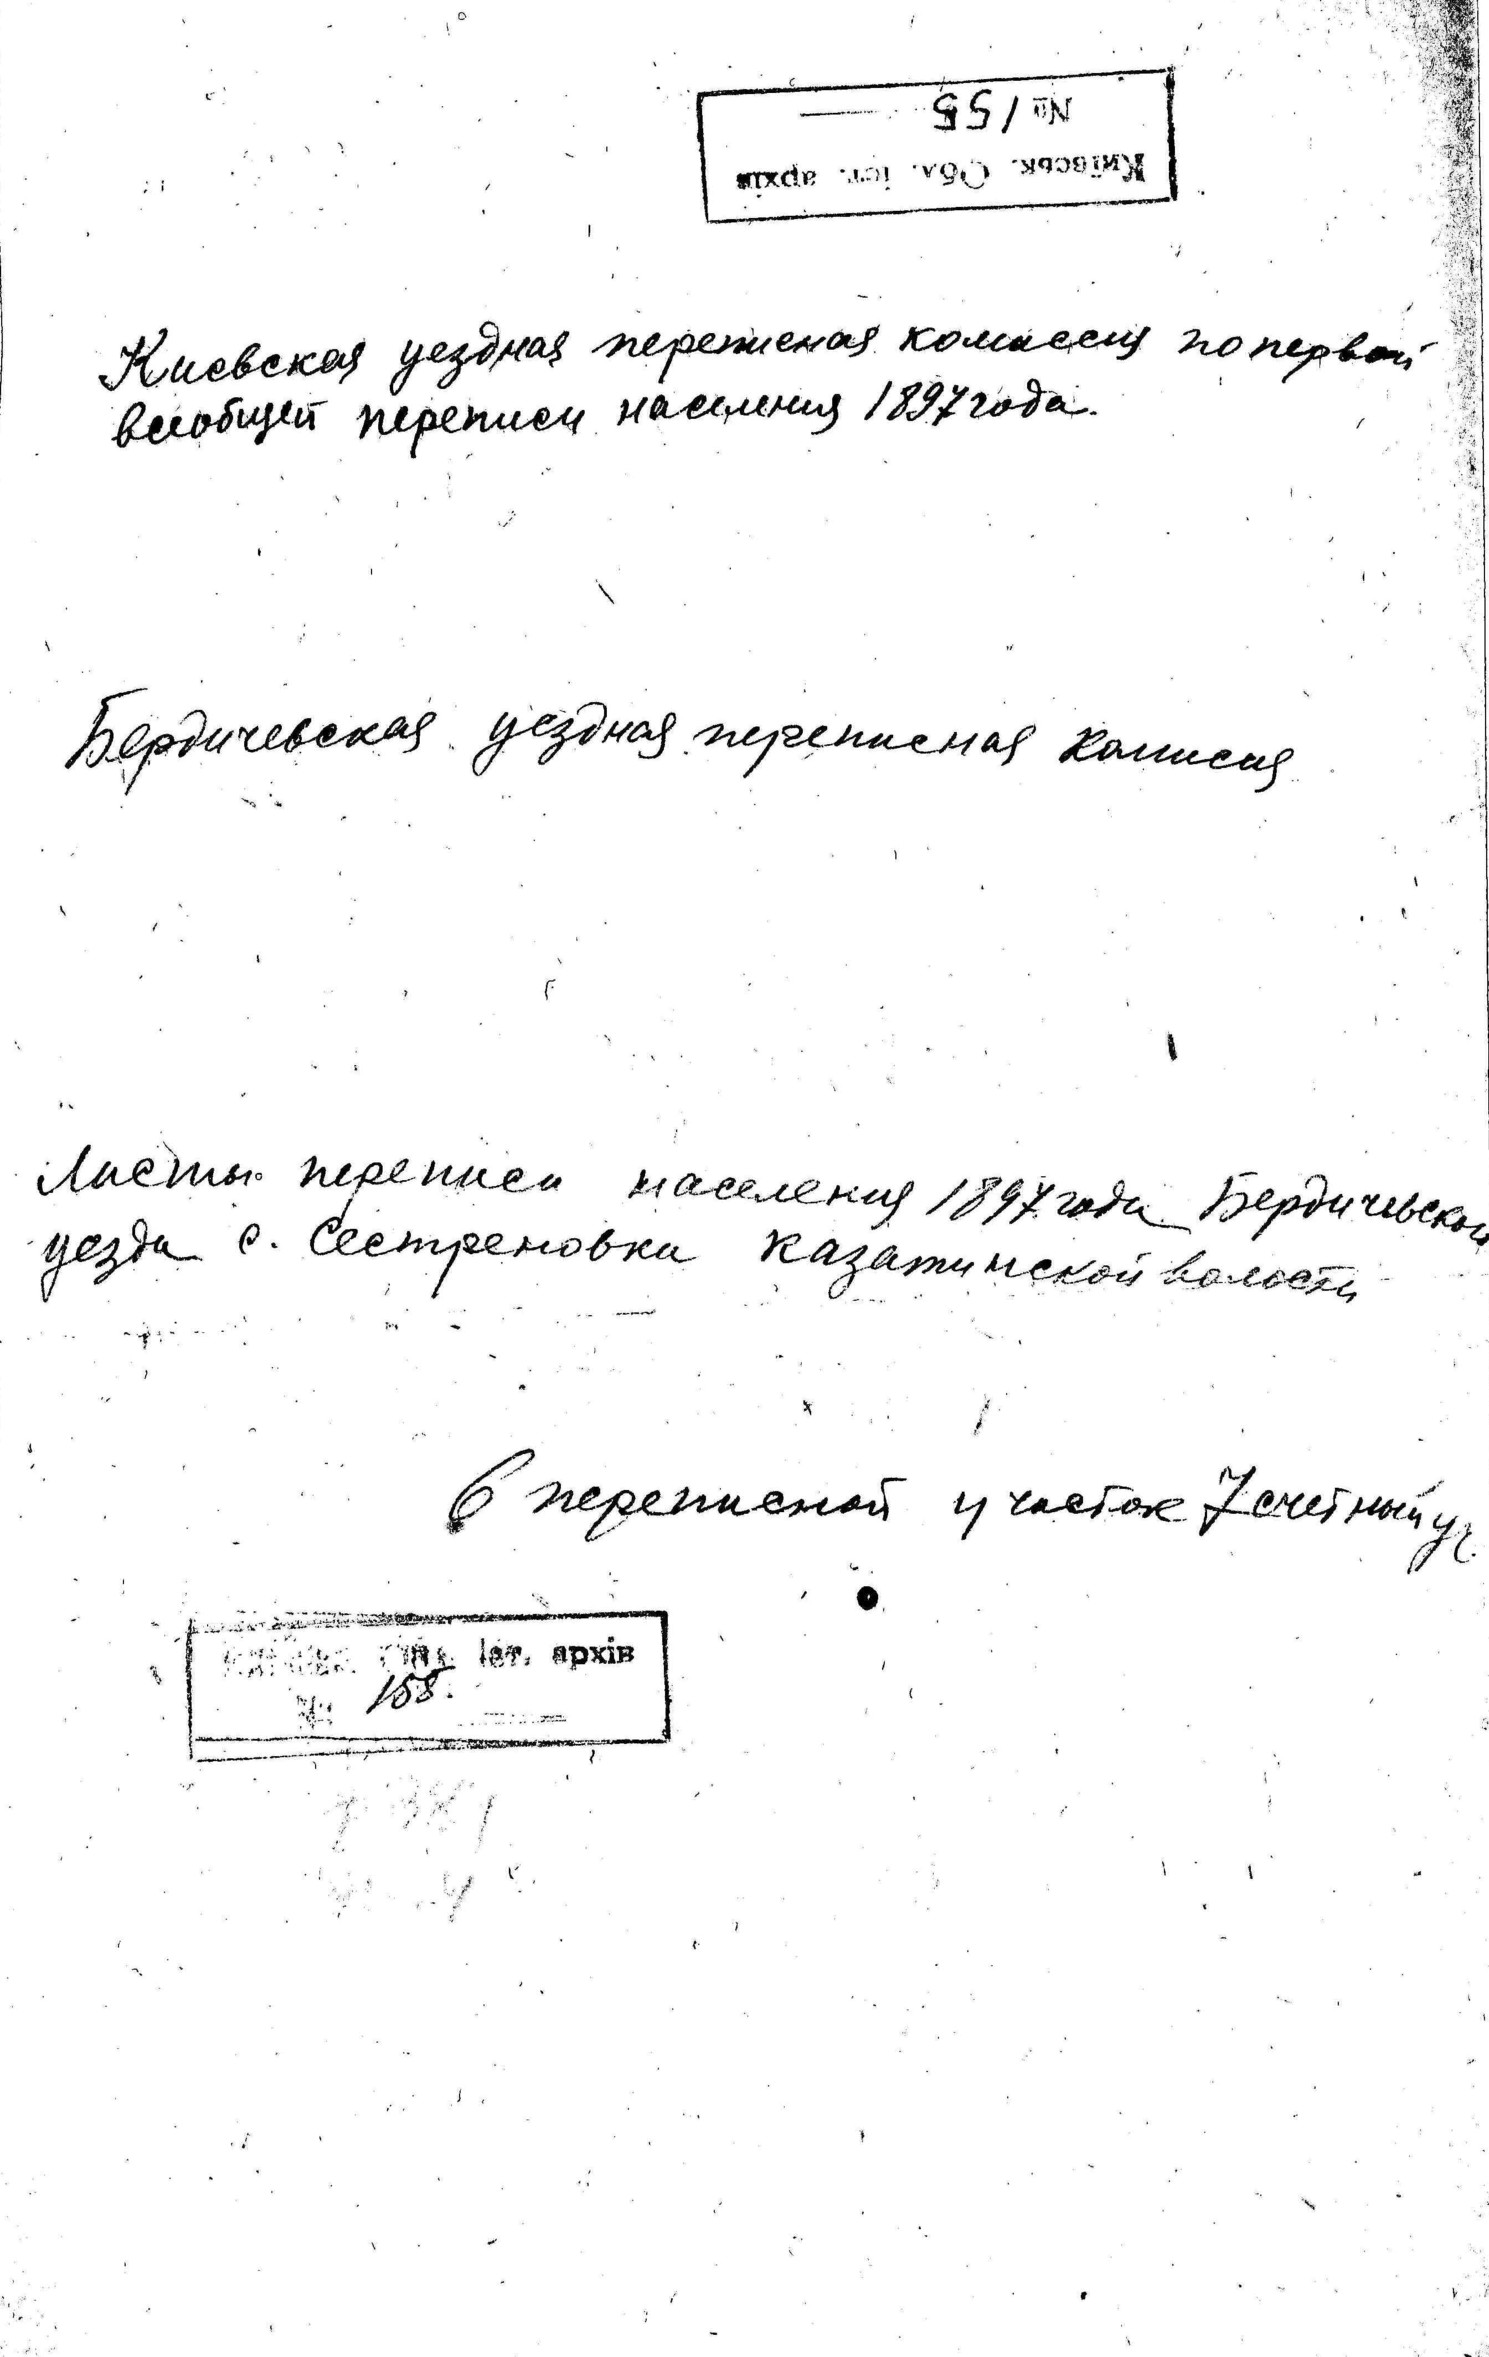 Київськ. Обл. іст. архів
№ 155
Киевская уездная переписная комиссия по первой
всеобщей переписи населения 1897 года.
Бердичевская уездная переписная комисия
Листы переписи населения 1897 года Бердичевского
уезда с. Сестреновка Казатинской волости
6 переписной участок 7 счетный уч.
іст. архів
155.